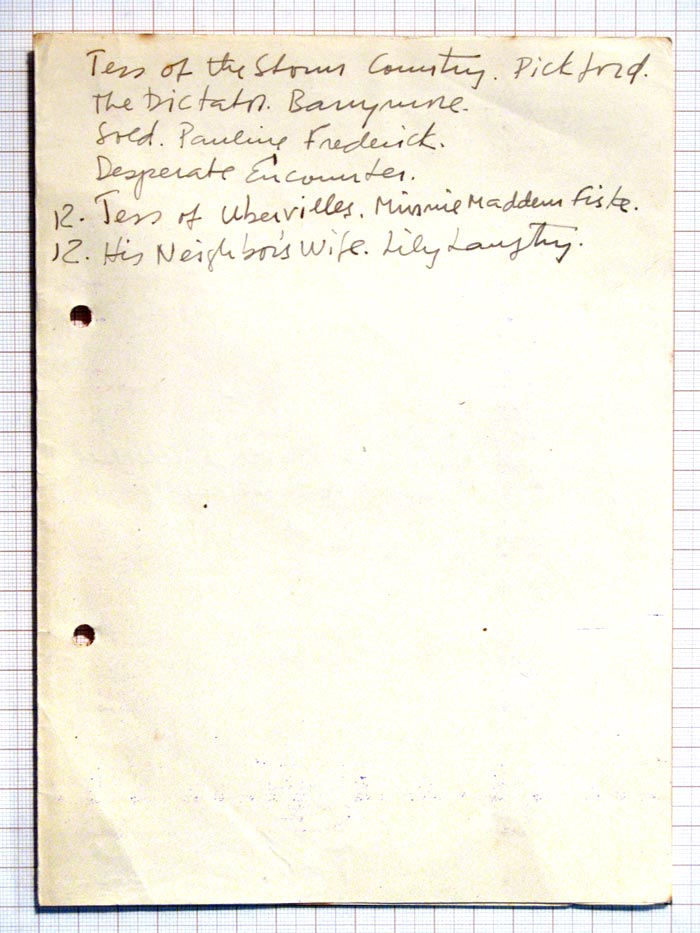 Tess of the Storm Country. Pickford.
The Dictator. Barrymore.
Sold. Pauline Frederick.
Desperate Encounter.
12. Tess of Ubervilles. Minnie Maddern Fiske.
12. His Neighbor's Wife. Lily Langtry.